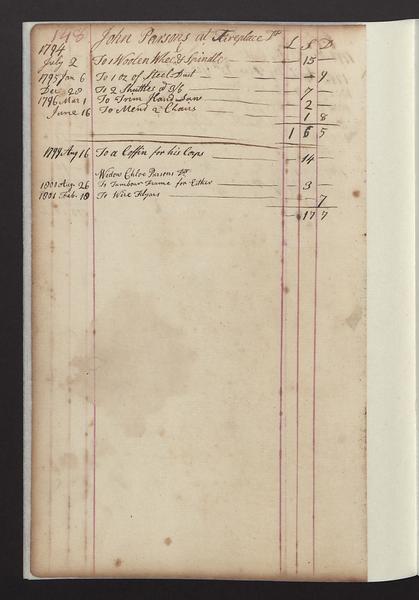 148 John Parsons at Fireplace Dr
L S D
1794
July 2 To 1 Woolen Wheel & Spindle — 15 —
1795 Jan 6 To 1 oz of Steel Dust — — 9
Dec 28 To 2 Shuttles @ 3/6 — 7 —
1796 Mar 1 To Trim Hand Saw — 2 —
June 16 To Mend 2 Chairs 1 8
1 6 5
1799 Aug 16 To a Coffin for his Corps — 14 —
Widow Chloe Parsons Dr
1801 Aug 26 To Tambour Frame for Esther — 3 —
1801 Feb. 18 To Wire 7
— 17 7